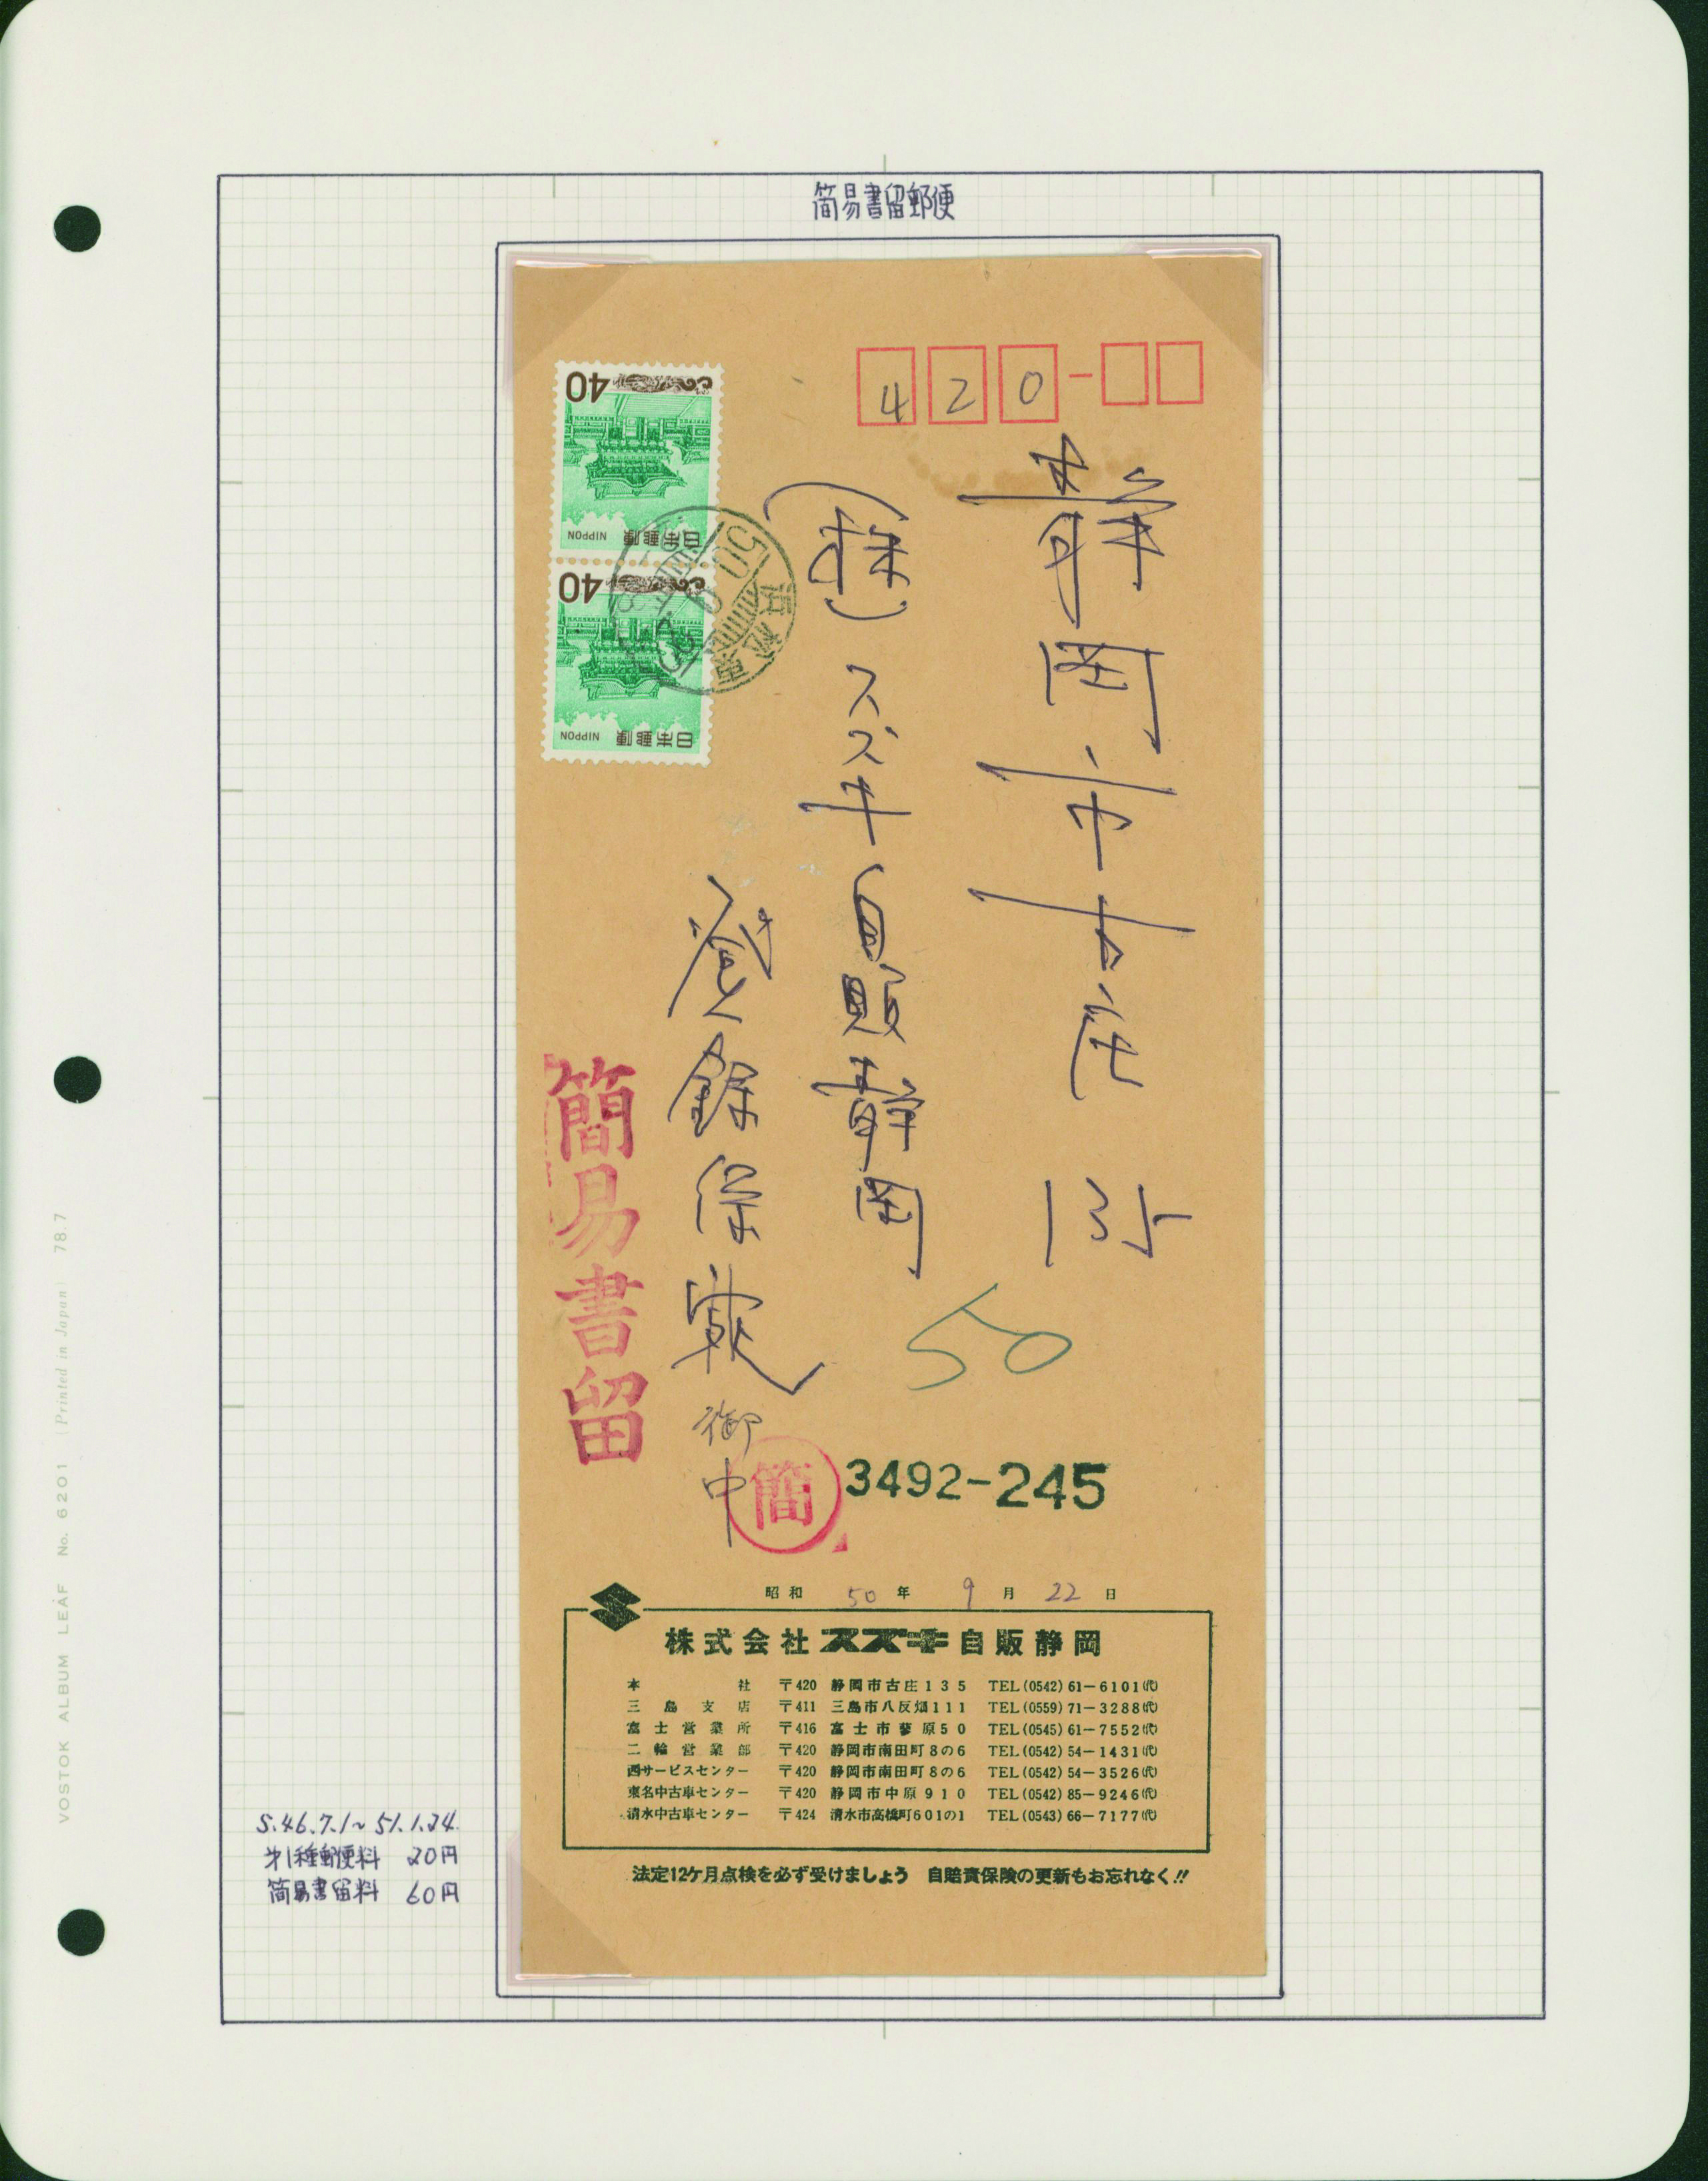 簡易書留郵便
420-
静岡市古庄 135
(株)スズキ自販静岡
登録保険 御中
40
日本郵便 NIPPON
40
日本郵便 NIPPON
50
簡易書留
簡 3492-245
昭和 50 年 9 月 22 日
株式会社 スズキ 自販静岡
本社 〒420 静岡市古庄135 TEL(0542)61-6101(代)
三島支店 〒411 三島市八反畑111 TEL(0559)71-3288(代)
富士営業所 〒416 富士市蓼原50 TEL(0545)61-7552(代)
二輪営業部 〒420 静岡市南田町8の6 TEL(0542)54-1431(代)
西サービスセンター 〒420 静岡市南田町8の6 TEL(0542)54-3526(代)
東名中古車センター 〒420 静岡市中原910 TEL(0542)85-9246(代)
清水中古車センター 〒424 清水市高橋町601の1 TEL(0543)66-7177(代)
法定12ケ月点検を必ず受けましょう 自賠責保険の更新もお忘れなく!!
S.46.7.1~51.1.24.
才1種郵便料 20円
簡易書留料 60円
VOSTOK ALBUM LEAF No. 6201 (Printed in Japan) 78.7